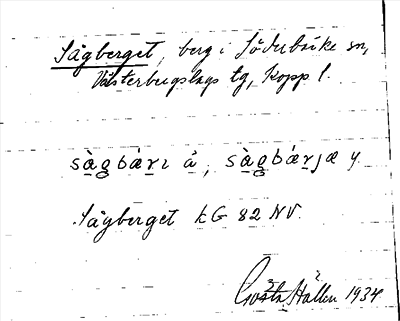 Sågberget, berg i Söderbärke sn,
Västerbergslags tg, Kopp l.
sàgbárı å, sàgbárjæ y.
Sågberget kG 82 NV.
Gösta Hallén 1934